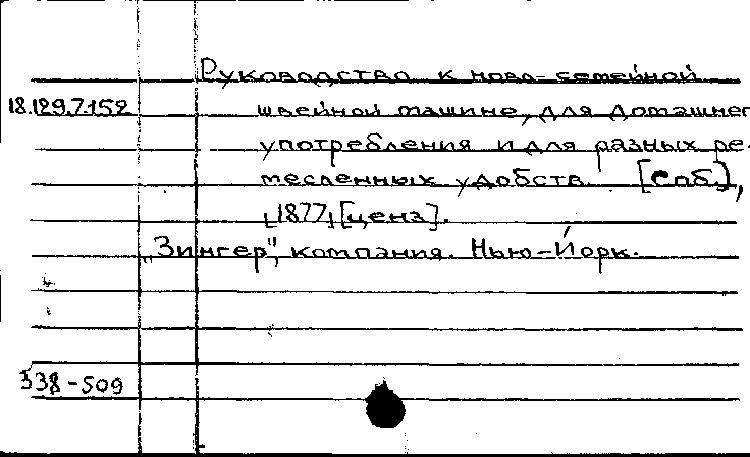 Руководство к ново-семейной
18.129.7.152 швейной машине, для домашнег
употребления и для разных ре-
месленных удобств. [Спб.],
[1877] [ценз].
„Зингер", компания. Нью-Йорк.
338-509